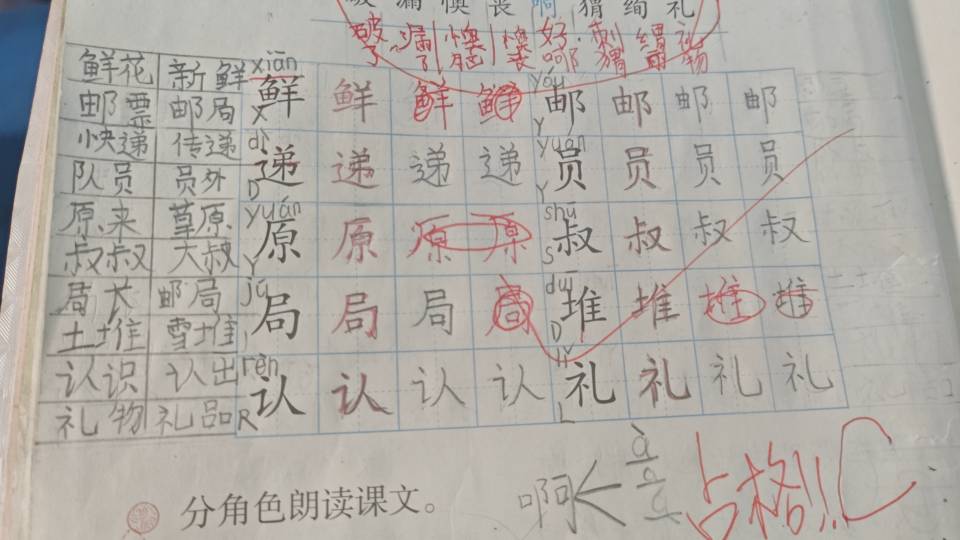 漏 懊 丧 啊 猬 绚 礼
破了 漏了 懊恼 懊丧 好啊 刺猬 礼物
鲜花 新鲜 xiān 鲜 鲜 鲜 鲜 yóu 邮 邮 邮 邮
邮票 邮局 X Y
快递 传递 dì 递 递 递 递 yuán 员 员 员 员
队员 员外 D Y
原来 草原 yuán 原 原 原 原 shū 叔 叔 叔 叔
叔叔 大叔 Y S
局长 邮局 jú 局 局 局 局 duī 堆 堆 堆 堆
土堆 雪堆 J D
认识 认出 rèn 认 认 认 认 lǐ 礼 礼 礼 礼
礼物 礼品 R L
啊 à a 占格!! C
分角色朗读课文。